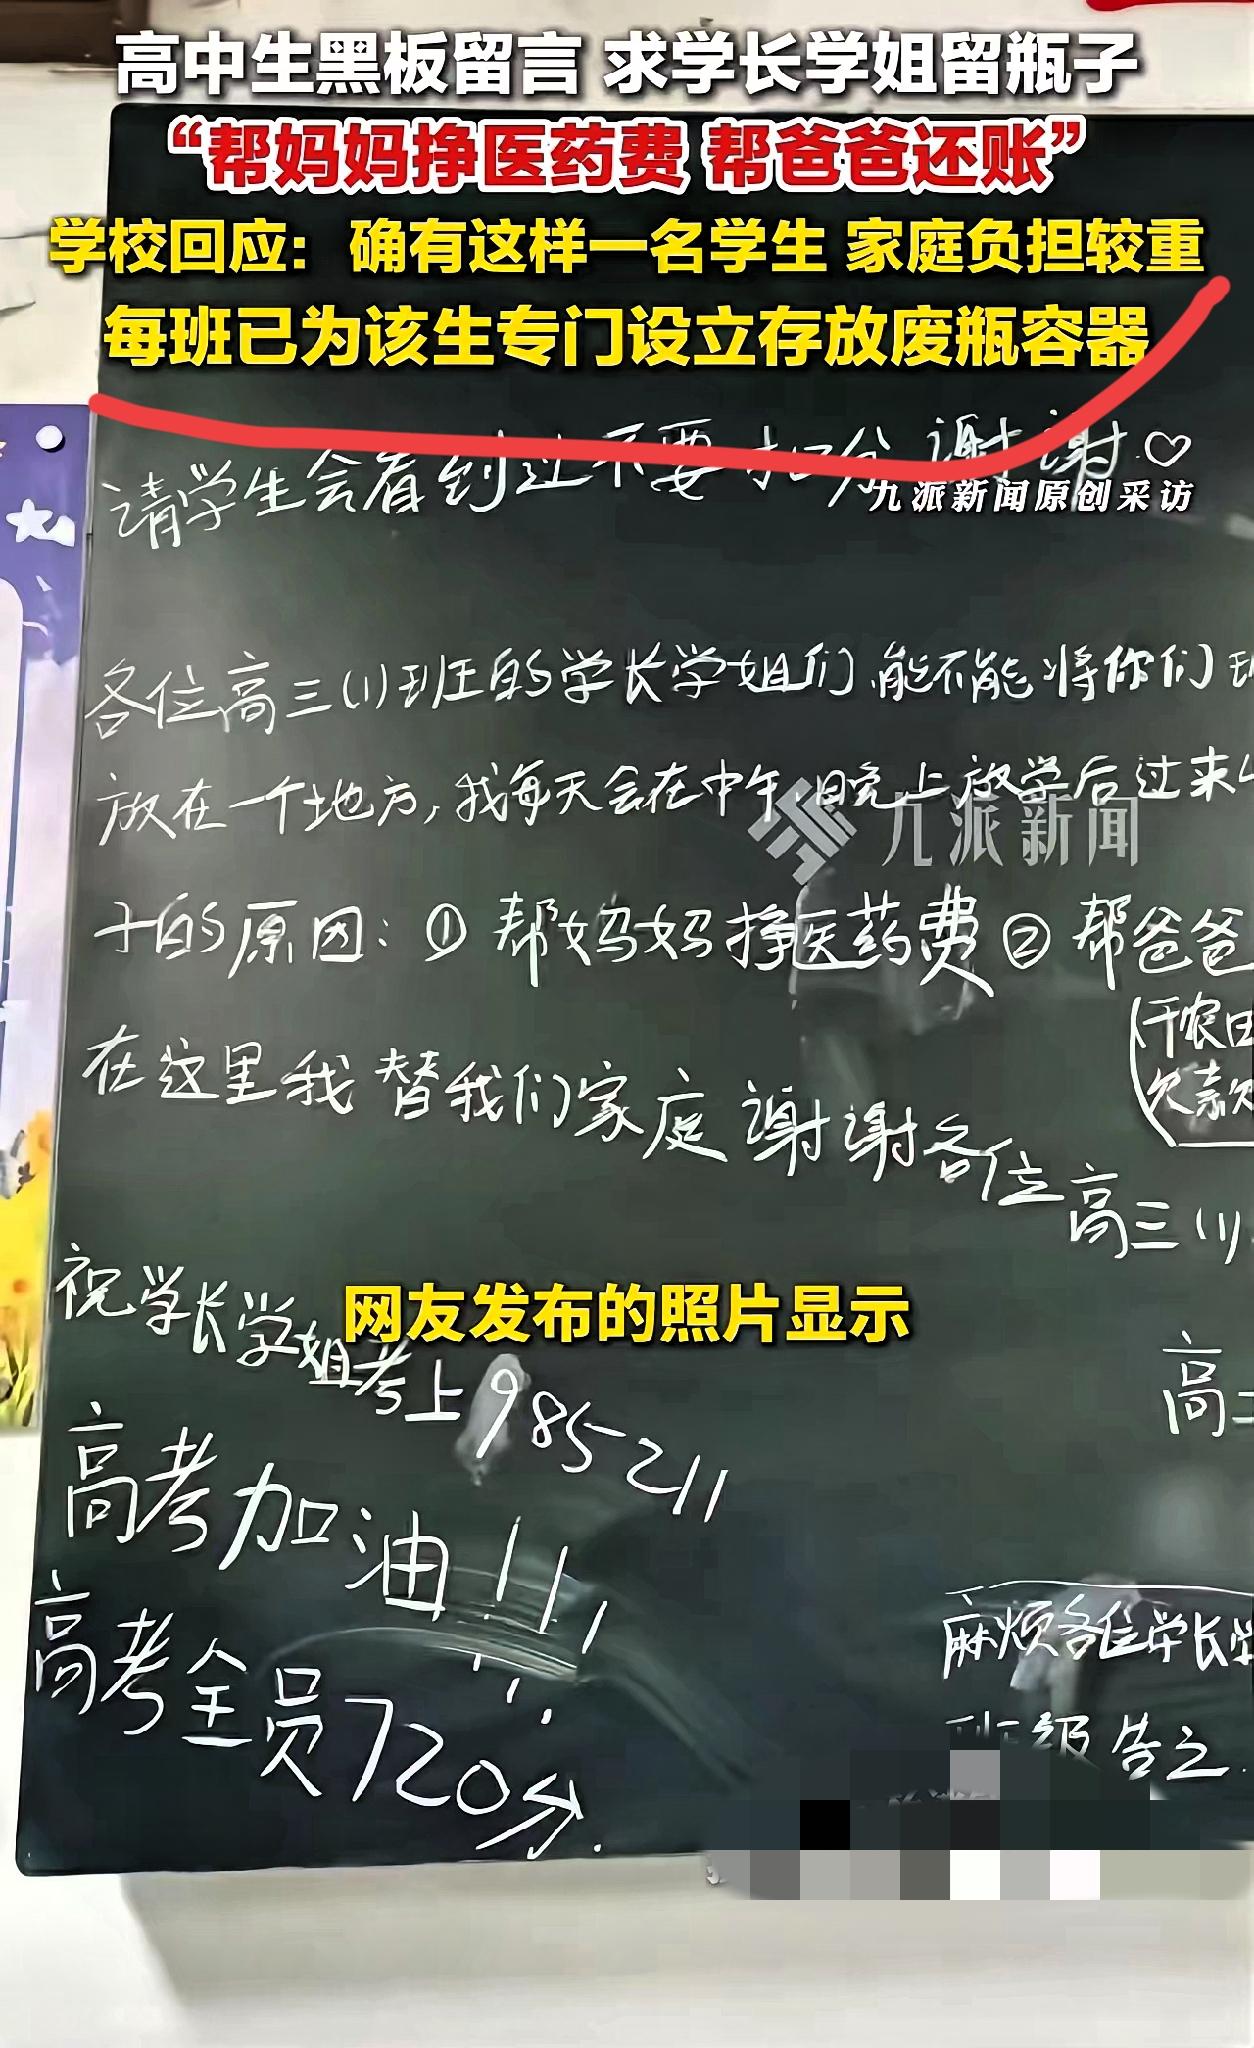 高中生黑板留言 求学长学姐留瓶子
“帮妈妈挣医药费 帮爸爸还账”
学校回应：确有这样一名学生 家庭负担较重
每班已为该生专门设立存放废瓶容器
请学生会看到过不要扣分 谢谢♡
九派新闻原创采访
各位高三(1)班的学长学姐们,能不能将你们
放在一个地方,我每天会在中午,晚上放学后过来
九派新闻
子的原因:①帮妈妈挣医药费②帮爸爸
欠款
在这里我替我们家庭谢谢各位高三(1)
祝学长学姐考上985 211
网友发布的照片显示
高考加油!!!
高考全员720分.
麻烦各位学长
班级告之.